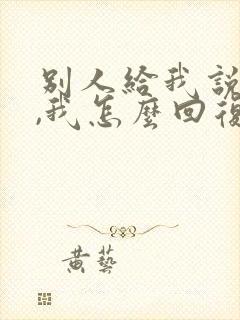 別人給我說
,我怎麼回復
黃藝